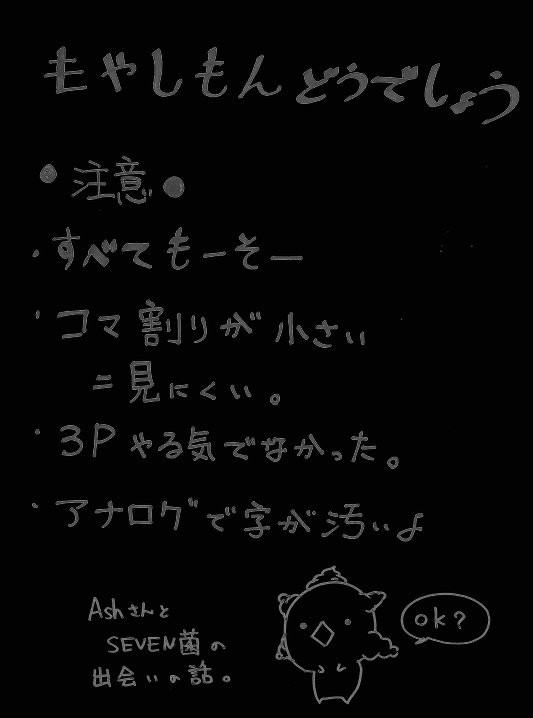 もやしもんどうでしょう
●注意●
・すべてもーそー
・コマ割りが小さい
=見にくい。
・3Pやる気でなかった。
・アナログで字が汚いよ
Ashさんと
SEVEN菌の
出会いの話。
ok?